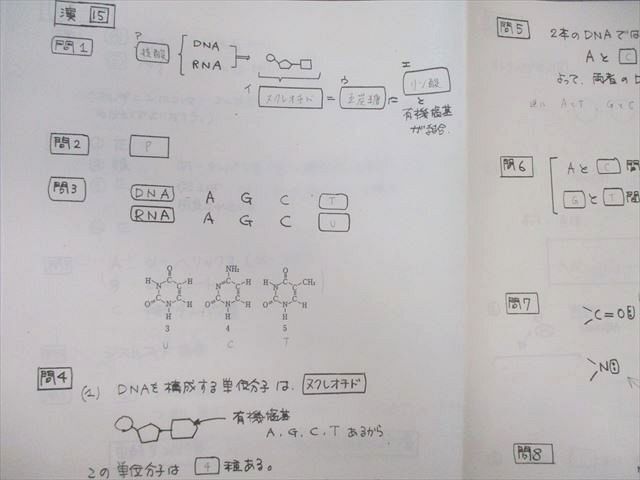 演 15
問1
ア
核酸
DNA
RNA
イ
ヌクレオチド
=
ウ
五炭糖
エ
リン酸
と
有機塩基
が結合.
問2 P
問3 DNA A G C T
RNA A G C U
O
H N H
O N H
H
3
U
NH₂
N H
O N H
H
4
C
O
H N CH₃
O N H
H
5
T
問4
(1) DNAを構成する単位分子は、ヌクレオチド
有機塩基
A,G,C,Tあるから
この単位分子は 4 種ある。
問5
2本のDNAでは
AとC
よって、両者の
A<T, G<C
問6
AとC間
GとT間
問7
C=O
N
問8